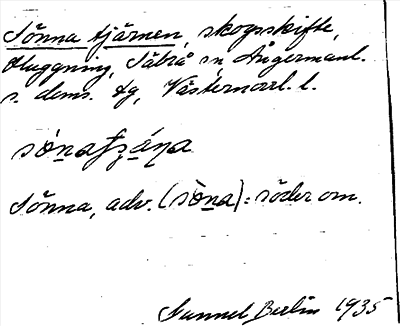 Sönna tjärnen, skogsskifte,
Huggning, Säbrå sn, Ångermanl.
s. doms. dg, Västernorrl. l.
Sönna, adv. (sòna): söder om.
Samuel Berlin 1935